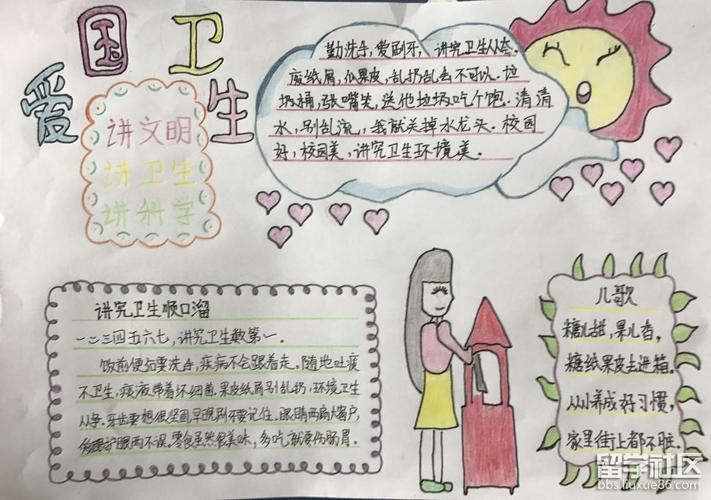 爱国卫生
讲文明
讲卫生
讲科学
勤洗手,爱刷牙,讲究卫生人人夸.
废纸屑,瓜果皮,乱扔乱丢不可以.垃
圾桶,张嘴笑,送他垃圾吃个饱.清清
水,别乱流,我就关掉水龙头.校园
好,校园美,讲究卫生环境美.
讲究卫生顺口溜
一二三四五六七,讲究卫生数第一.
饭前便后要洗手,疾病不会跟着走.随地吐痰
不卫生,痰液带着坏细菌.果皮纸屑别乱扔,环境卫生
从学.牙齿要想很坚固,早晚刷牙要记住.眼睛两扇大窗户,
护眼两不误.零食虽然很美味,多吃就要伤肠胃.
儿歌
糖儿甜,果儿香,
糖纸果皮去进箱.
从小养成好习惯,
家里街上都不脏.
留学社区
bbs.liuxue86.com